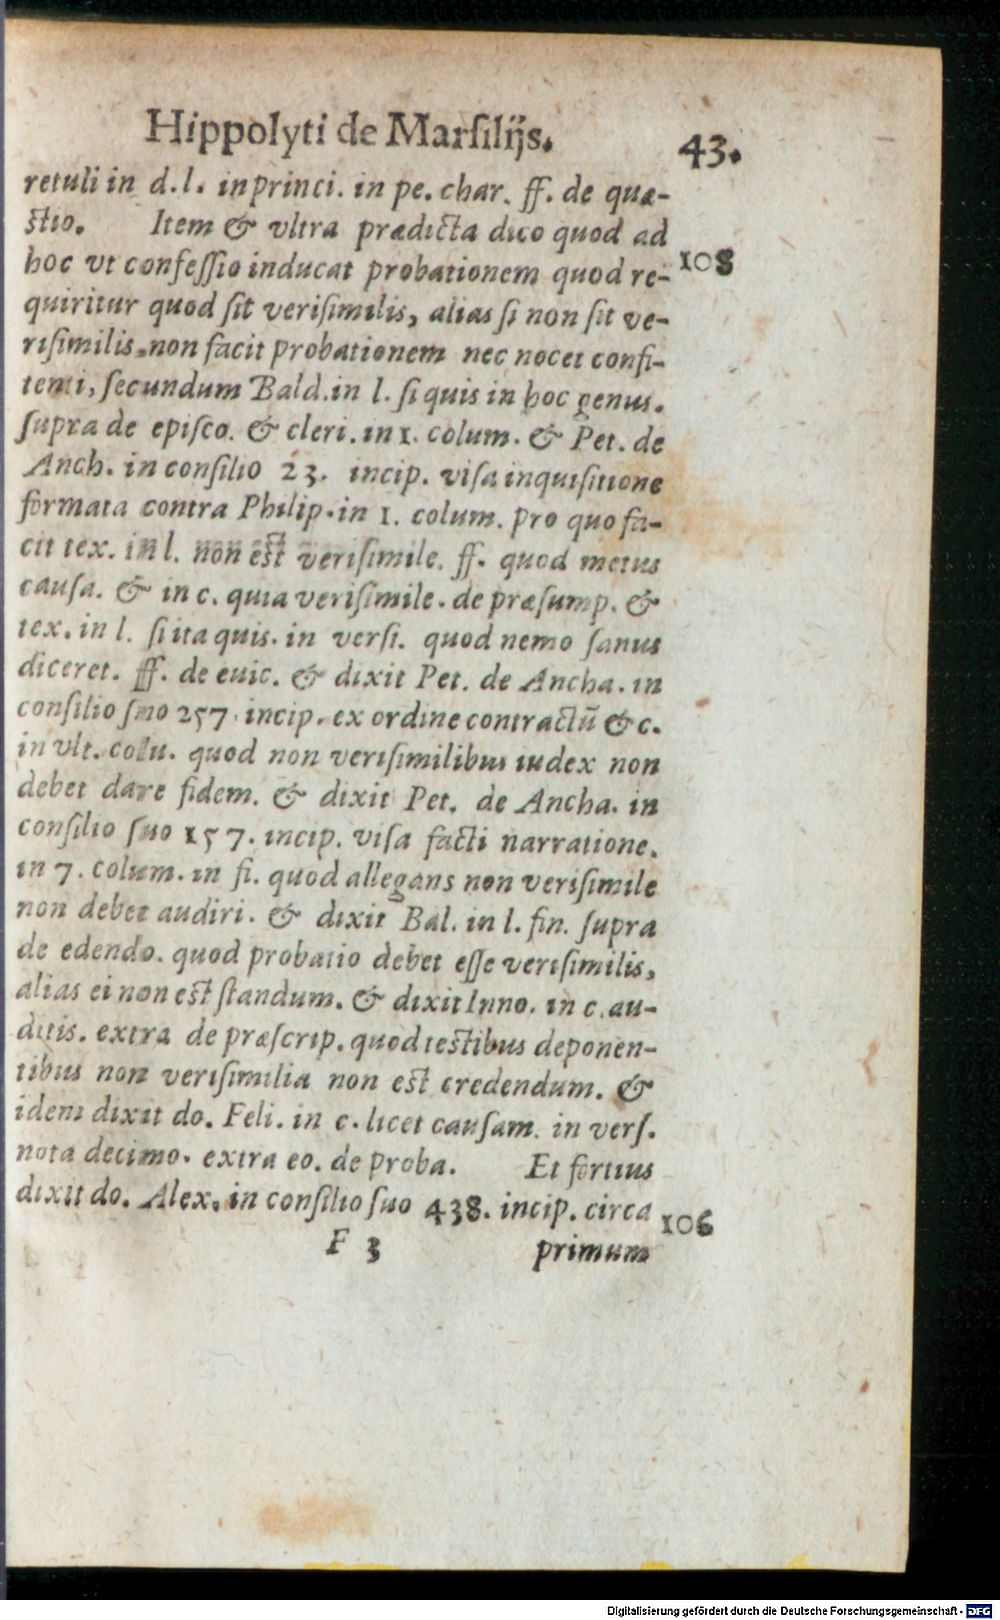 Hippolyti de Marſilijs. 43.
retuli in d. l. in princi. in pe. char. ff. de quæ-
ſtio. Item & vltra prædicta dico quod ad
hoc vt confeſſio inducat probationem quod re- 108
quiritur quod ſit veriſimilis, alias ſi non ſit ve-
riſimilis, non facit probationem nec nocet confi-
tenti, ſecundum Bald. in l. ſi quis in hoc genus.
ſupra de epiſco. & cleri. in 1. colum. & Pet. de
Anch. in conſilio 23. incip. viſa inquiſitione
formata contra Philip. in 1. colum. pro quo fa-
cit tex. in l. non eſt veriſimile. ff. quod metus
cauſa. & in c. quia veriſimile. de præſump. &
tex. in l. ſi ita quis. in verſi. quod nemo ſanus
diceret. ff. de euic. & dixit Pet. de Ancha. in
conſilio ſuo 257. incip. ex ordine contractũ & c.
in vlt. colu. quod non veriſimilibus iudex non
debet dare fidem. & dixit Pet. de Ancha. in
conſilio ſuo 157. incip. viſa facti narratione.
in 7. colum. in fi. quod allegans non veriſimile
non debet audiri. & dixit Bal. in l. fin. ſupra
de edendo. quod probatio debet eſſe veriſimilis,
alias ei non eſt ſtandum. & dixit Inno. in c. au-
ditis. extra de præſcrip. quod teſtibus deponen-
tibus non veriſimilia non est credendum. &
idem dixit do. Feli. in c. licet cauſam. in verſ.
nota decimo. extra eo. de proba. Et fortius
dixit do. Alex. in conſilio ſuo 438. incip. circa 106
F 3 primum
Digitalisierung gefördert durch die Deutsche Forschungsgemeinschaft - DFG